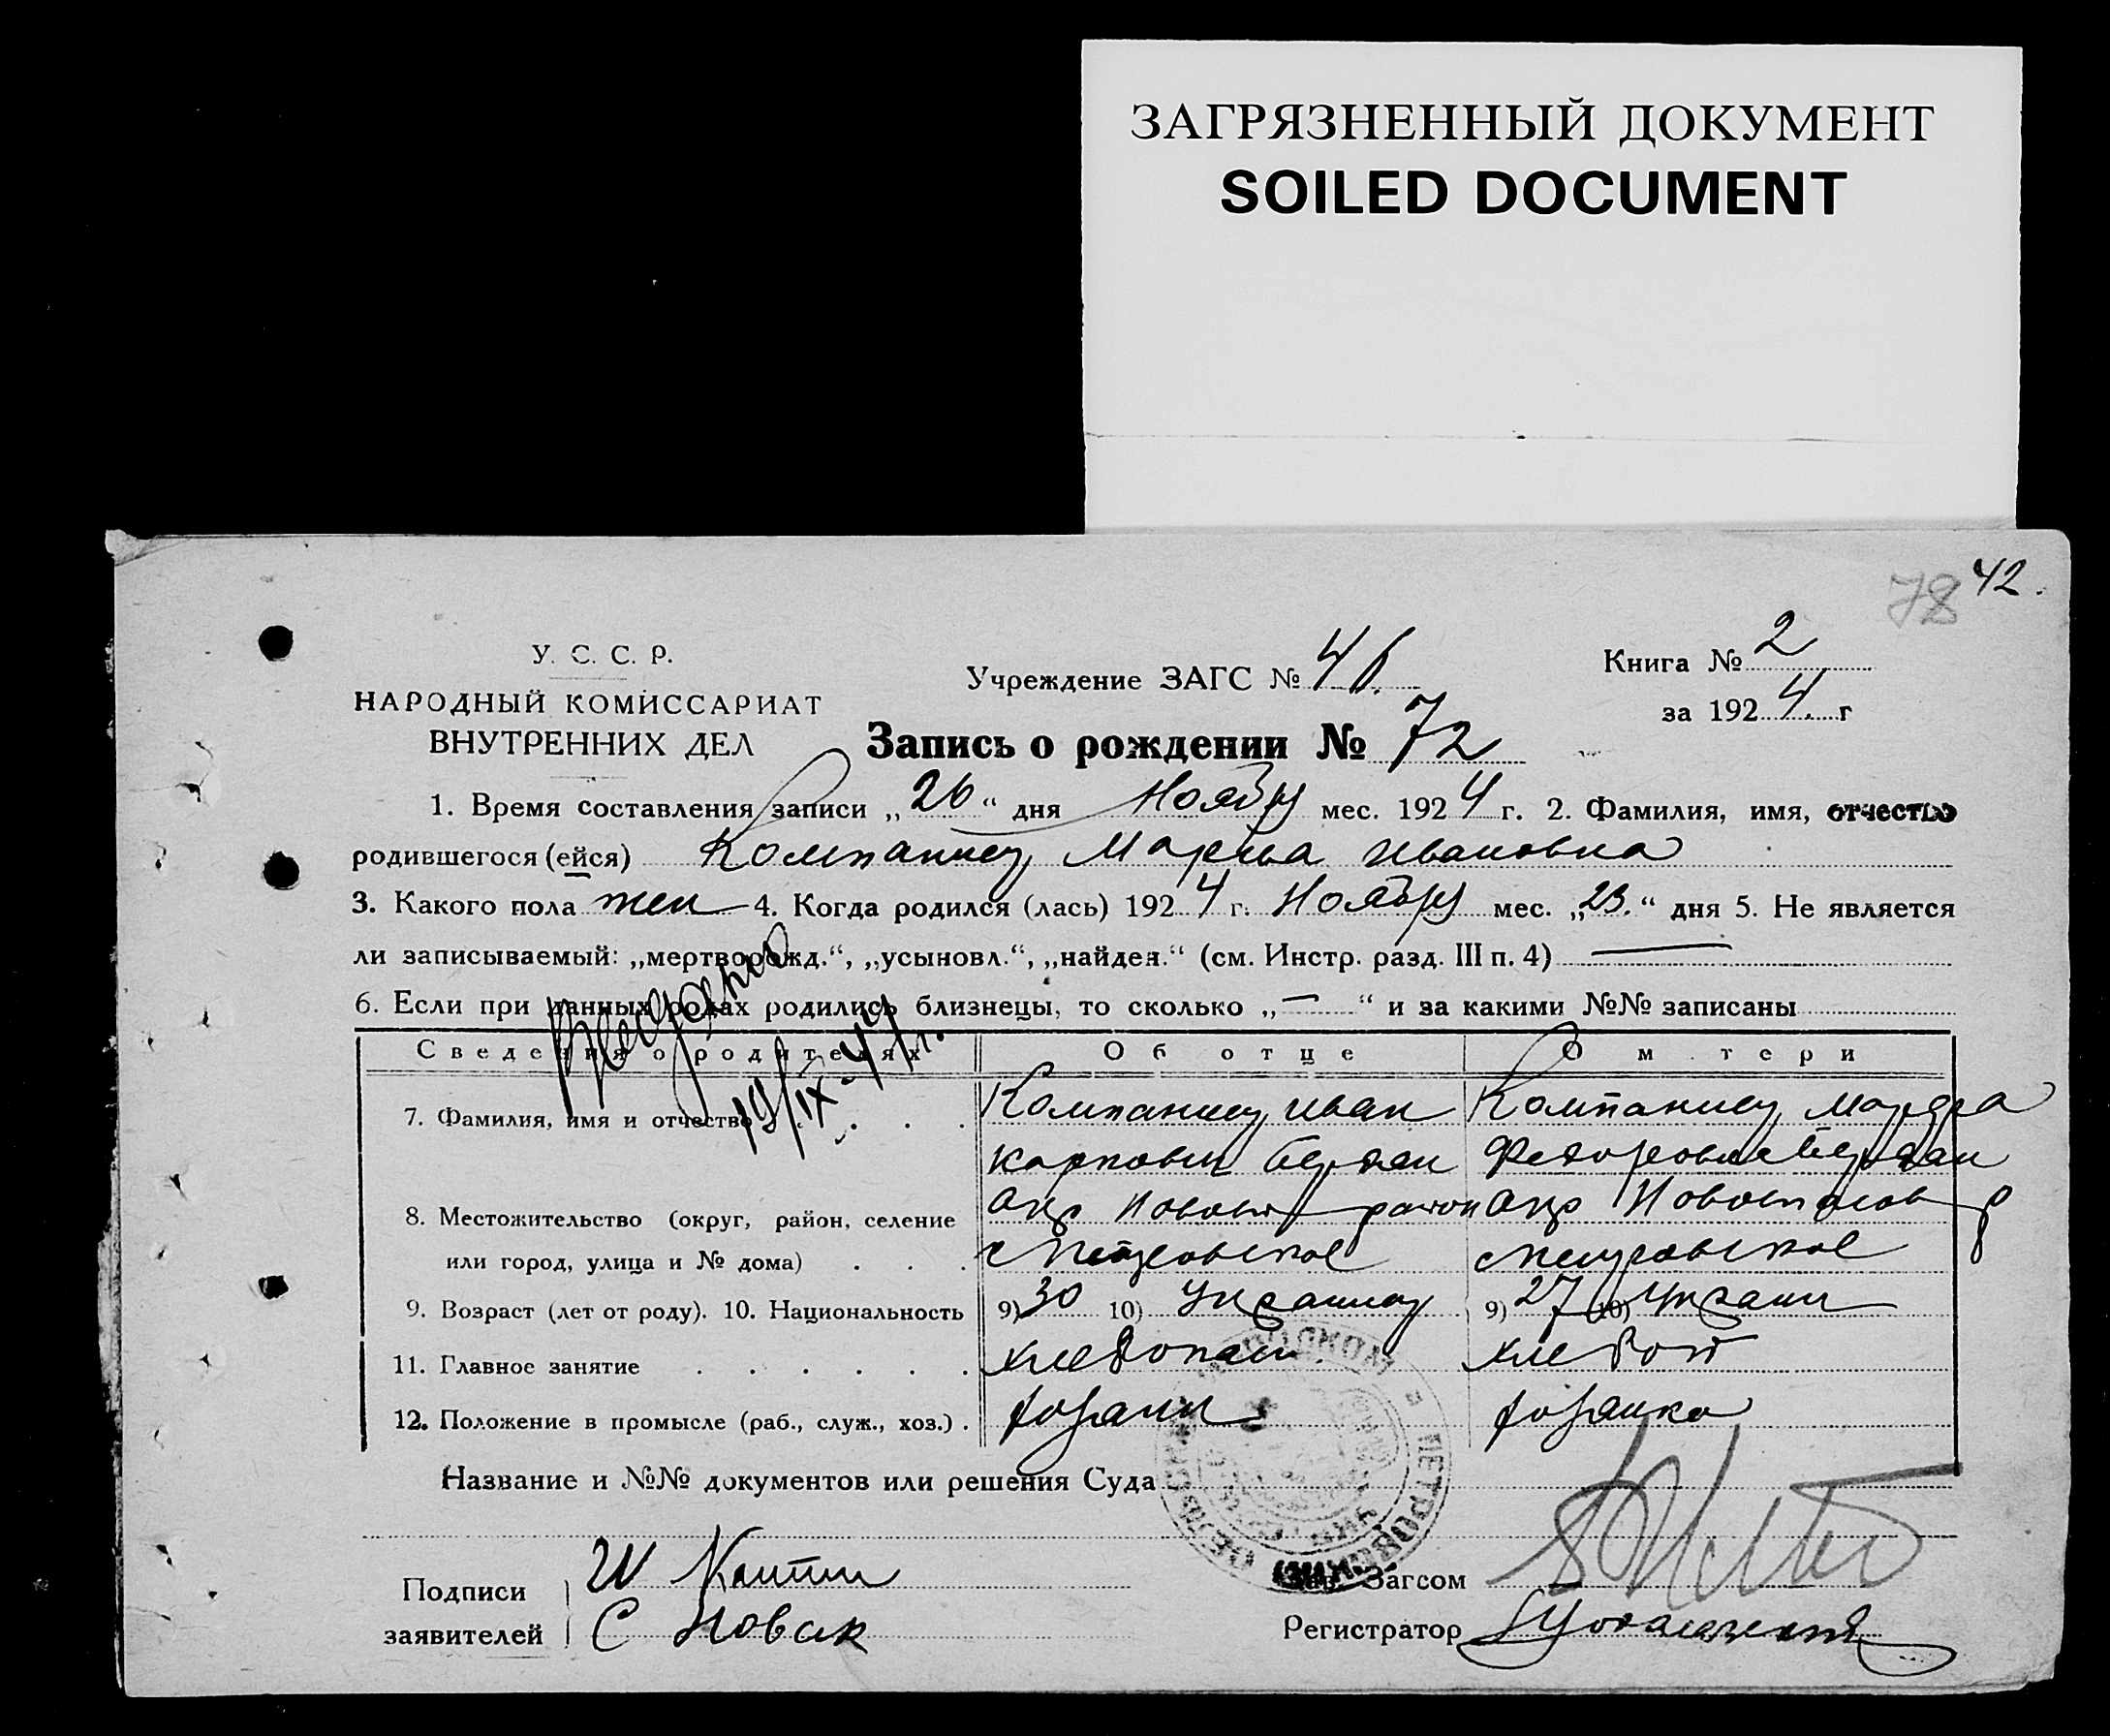 ЗАГРЯЗНЕННЫЙ ДОКУМЕНТ
SOILED DOCUMENT
78 42.
У. С. С. Р.
НАРОДНЫЙ КОМИССАРИАТ
ВНУТРЕННИХ ДЕЛ
Учреждение ЗАГС №
Книга № 2
за 192 4. г
Запись о рождении № 72
1. Время составления записи „ 26 “ дня Ноября мес. 192 4 г. 2. Фамилия, имя, отчество
родившегося (ейся) Компаниец Марья Ивановна
3. Какого пола жен 4. Когда родился (лась) 192 4 г. Ноября мес. „ 23. “ дня 5. Не является
ли записываемый: „мертворожд.“, „усыновл.“, „найден.“ (см. Инстр. разд. III п. 4) —
6. Если при данных родах родились близнецы, то сколько „ — “ и за какими №№ записаны
19/IX-44 г.
Сведения о родителях Об отце О м тери
7. Фамилия, имя и отчество Компаниец Иван Компаниец
Карпович Бердян Федоровна Бердян
8. Местожительство (округ, район, селение окр район окр Новоспасов р
или город, улица и № дома) с Петровское с Петровское
9. Возраст (лет от роду). 10. Национальность 9) 30 10) Украинец 9) 27 10) Украин
11. Главное занятие хлебопаш. хлебоп
12. Положение в промысле (раб., служ., хоз.)
Название и №№ документов или решения Суда
ПЕТРОВСКИЙ
Подписи
заявителей
С Новак
Зав. Загсом
Регистратор